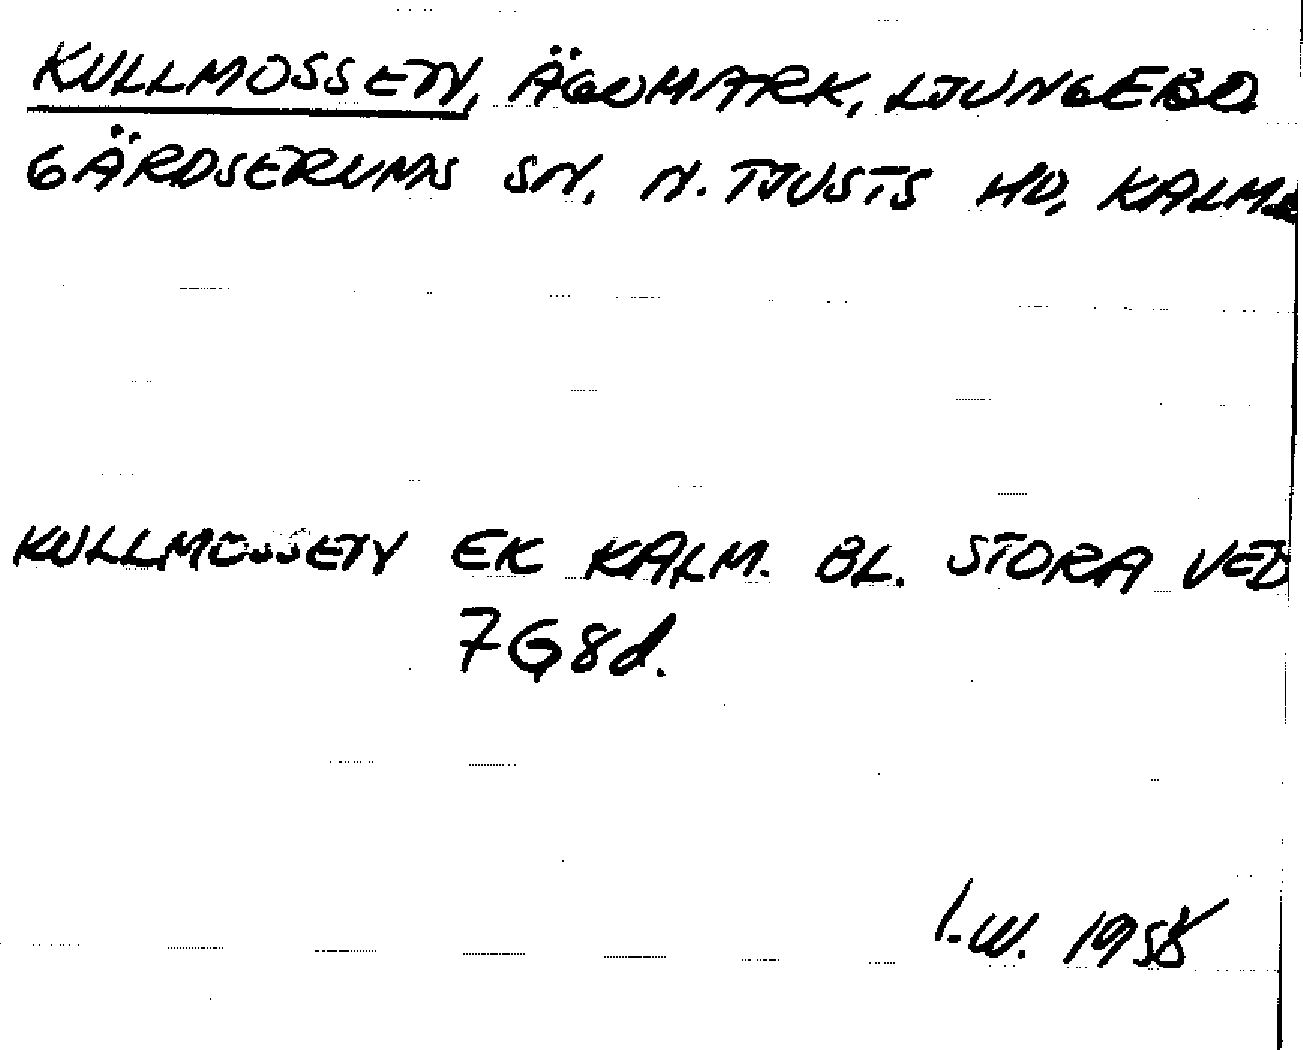 KULLMOSSEN, ÄGOMARK, LJUNGEBO
GÄRDSERUMS SN, N. TJUSTS HD, KALM.
KULLMOSSEN EK KALM. BL. STORA VED
7G8d.
I.W. 1958